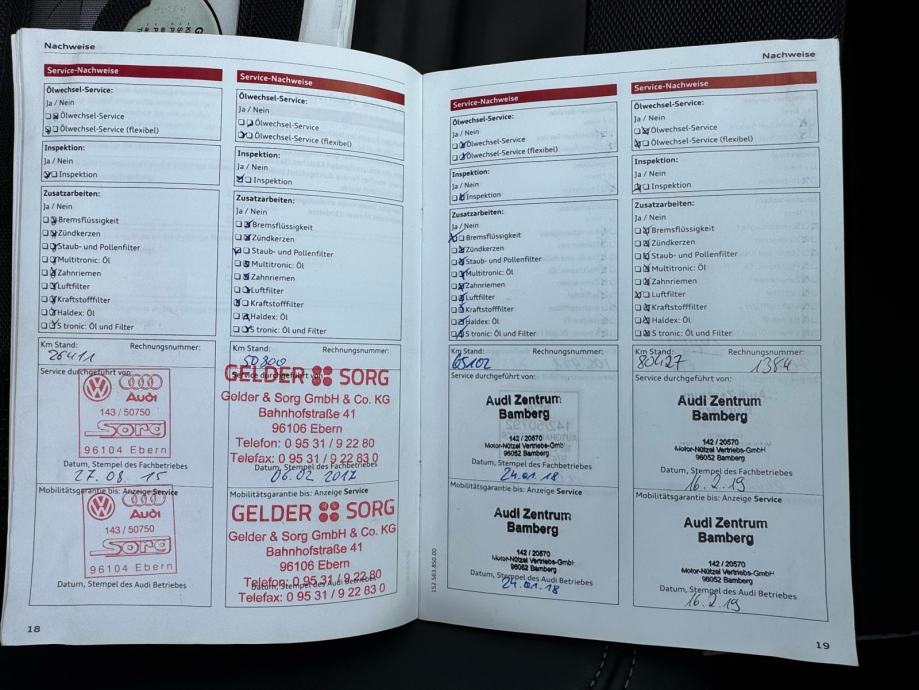 Nachweise
Service-Nachweise
Ölwechsel-Service:
Ja / Nein
Ölwechsel-Service
Ölwechsel-Service (flexibel)
Inspektion:
Ja / Nein
Inspektion
Zusatzarbeiten:
Ja / Nein
Bremsflüssigkeit
Zündkerzen
Staub- und Pollenfilter
Multitronic: Öl
Zahnriemen
Luftfilter
Kraftstofffilter
Haldex: Öl
S tronic: Öl und Filter
Km Stand: Rechnungsnummer:
26411
Service durchgeführt von:
Audi
143 / 50750
Sorg
96104 Ebern
Datum, Stempel des Fachbetriebes
27.08.15
Mobilitätsgarantie bis: Anzeige Service
Audi
143 / 50750
Sorg
96104 Ebern
Datum, Stempel des Audi Betriebes
18
Service-Nachweise
Ölwechsel-Service:
Ja / Nein
Ölwechsel-Service
Ölwechsel-Service (flexibel)
Inspektion:
Ja / Nein
Inspektion
Zusatzarbeiten:
Ja / Nein
Bremsflüssigkeit
Zündkerzen
Staub- und Pollenfilter
Multitronic: Öl
Zahnriemen
Luftfilter
Kraftstofffilter
Haldex: Öl
S tronic: Öl und Filter
Km Stand: Rechnungsnummer:
Service durchgeführt von:
GELDER SORG
Gelder & Sorg GmbH & Co. KG
Bahnhofstraße 41
96106 Ebern
Telefon: 0 95 31 / 9 22 80
Telefax: 0 95 31 / 9 22 83 0
Datum, Stempel des Fachbetriebes
06.02 2017
Mobilitätsgarantie bis: Anzeige Service
GELDER SORG
Gelder & Sorg GmbH & Co. KG
Bahnhofstraße 41
96106 Ebern
Telefon: 0 95 31 / 9 22 80
Datum, Stempel des Audi Betriebes
Telefax: 0 95 31 / 9 22 83 0
Nachweise
Service-Nachweise
Ölwechsel-Service:
Ja / Nein
Ölwechsel-Service
Ölwechsel-Service (flexibel)
Inspektion:
Ja / Nein
Inspektion
Zusatzarbeiten:
Ja / Nein
Bremsflüssigkeit
Zündkerzen
Staub- und Pollenfilter
Multitronic: Öl
Zahnriemen
Luftfilter
Kraftstofffilter
Haldex: Öl
S tronic: Öl und Filter
Km Stand: Rechnungsnummer:
65102
Service durchgeführt von:
Audi Zentrum
Bamberg
142 / 20570
Motor-Nützel Vertriebs-GmbH
96052 Bamberg
Datum, Stempel des Fachbetriebes
24.01.18
Mobilitätsgarantie bis: Anzeige Service
Audi Zentrum
Bamberg
142 / 20570
Motor-Nützel Vertriebs-GmbH
96052 Bamberg
Datum, Stempel des Audi Betriebes
24.01.18
152.563.850.00
Service-Nachweise
Ölwechsel-Service:
Ja / Nein
Ölwechsel-Service
Ölwechsel-Service (flexibel)
Inspektion:
Ja / Nein
Inspektion
Zusatzarbeiten:
Ja / Nein
Bremsflüssigkeit
Zündkerzen
Staub- und Pollenfilter
Multitronic: Öl
Zahnriemen
Luftfilter
Kraftstofffilter
Haldex: Öl
S tronic: Öl und Filter
Km Stand: Rechnungsnummer:
80427 1384
Service durchgeführt von:
Audi Zentrum
Bamberg
142 / 20570
Motor-Nützel Vertriebs-GmbH
96052 Bamberg
Datum, Stempel des Fachbetriebes
16.2.19
Mobilitätsgarantie bis: Anzeige Service
Audi Zentrum
Bamberg
142 / 20570
Motor-Nützel Vertriebs-GmbH
96052 Bamberg
Datum, Stempel des Audi Betriebes
16.2.19
19